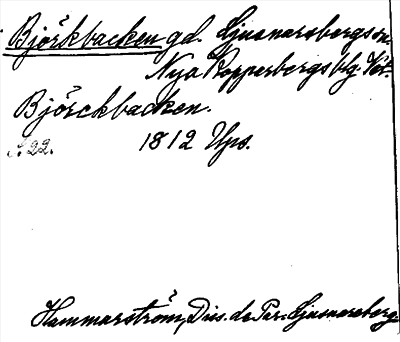 Björkbacken gd. Ljusnarsbergs sn.
Nya Kopparbergs blg. Vst.
Björckbacken.
s. 22. 1812 Ups.
Hammarström, Diss. de Par. Ljusnarsberg.